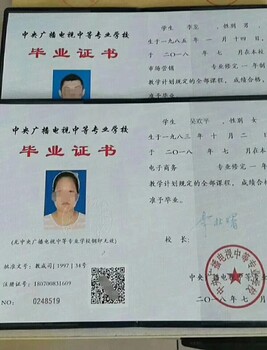 中央广播电视中等专业学校
毕业证书
学生
性别 男
生于一九八五年一月十四日,
于二〇一八年七月在
市场营销 专业修完一年制
教学计划规定的全部课程,成绩合格,
准予毕业。
中央广播电视中等专业学校
毕业证书
(无中央广播电视中等专业学校钢印无效)
批准文号:教成司[1997]34号
注册证号:
NO: 0248519
学生
性别 女
生于一九八三年十月二日,
于二〇一八年七月在
电子商务 专业修完一年制
教学计划规定的全部课程,成绩合格
准予毕业。
校长:
中央广播电视中等专业学
二〇一八年七月